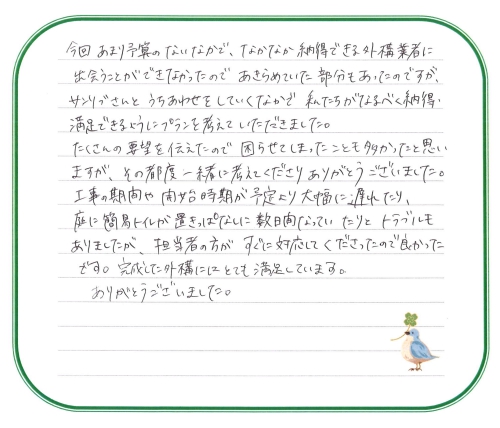 今回あまり予算のないなかで、なかなか納得できる外構業者に
出会うことができなかったので あきらめていた部分もあったのですが、
サンリブさんとうちあわせをしていくなかで 私たちがなるべく納得・
満足できるようにプランを考えていただきました。
たくさんの要望を伝えたので 困らせてしまったことも多かったと思い
ますが、その都度一緒に考えてくださりありがとうございました。
工事の期間や開始時期が予定より大幅に遅れたり、
庭に簡易トイレが置きっぱなしに数日間なっていたりと トラブルも
ありましたが、担当者の方が すぐに対応してくださったので良かった
です。完成した外構にはとても満足しています。
ありがとうございました。